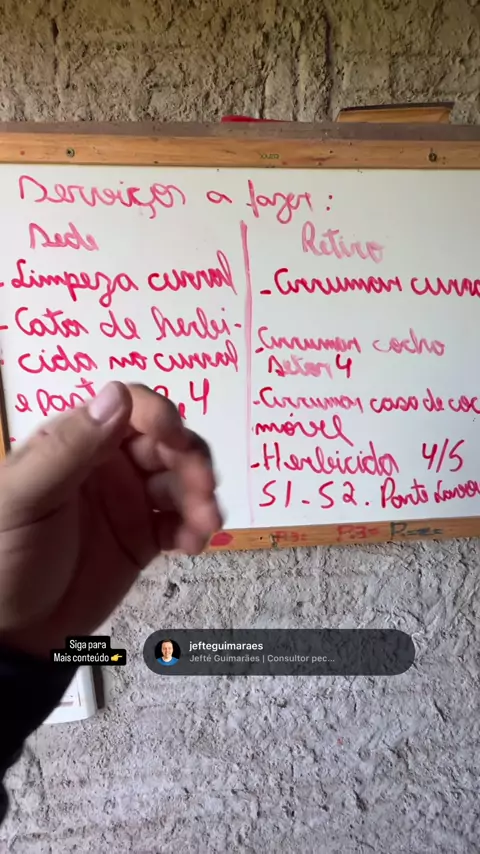 Serviços a fazer:
Sede
- Limpeza curral
- Cata de herbi-
cida no curral
e 4
Retiro
- Arrumar curra
- Arrumar cocho
Setor 4
- Arrumar casa de coc
móvel
- Herbicida 4/5
S1 - S2. Ponte
Siga para
Mais conteúdo 👉
jefteguimaraes
Jefté Guimarães | Consultor pec...